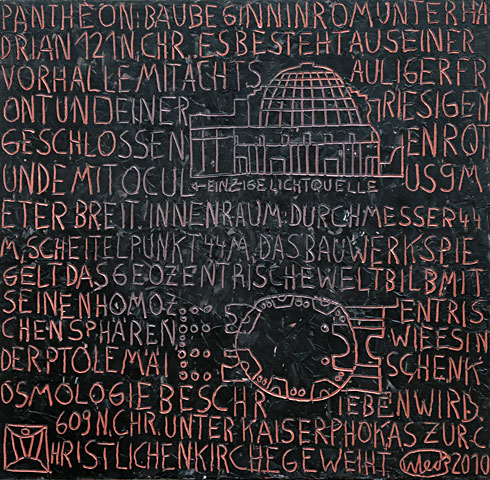 PANTHEON: BAUBEGINN IN ROM UNTER HA
DRIAN 121 N. CHR. ES BESTEHT AUS EINER
VORHALLE MIT ACHTS AULIGER FR
ONT UND EINER RIESIGEN
GESCHLOSSEN EN ROT
UNDE MIT OCUL ←EINZIGE LICHTQUELLE US 9 M
ETER BREIT. INNENRAUM: DURCHMESSER 44
M, SCHEITELPUNKT 44 M, DAS BAUWERK SPIE
GELT DAS GEOZENTRISCHE WELTBILB MIT
SEINEN HOMOZ ENTRIS
CHEN SPHÄREN WIE ES IN
DER PTOLEMÄI SCHEN K
OSMOLOGIE BESCHR IEBEN WIRD
609 N. CHR. UNTER KAISER PHOKAS ZUR C
HRISTLICHEN KIRCHE GEWEIHT 2010